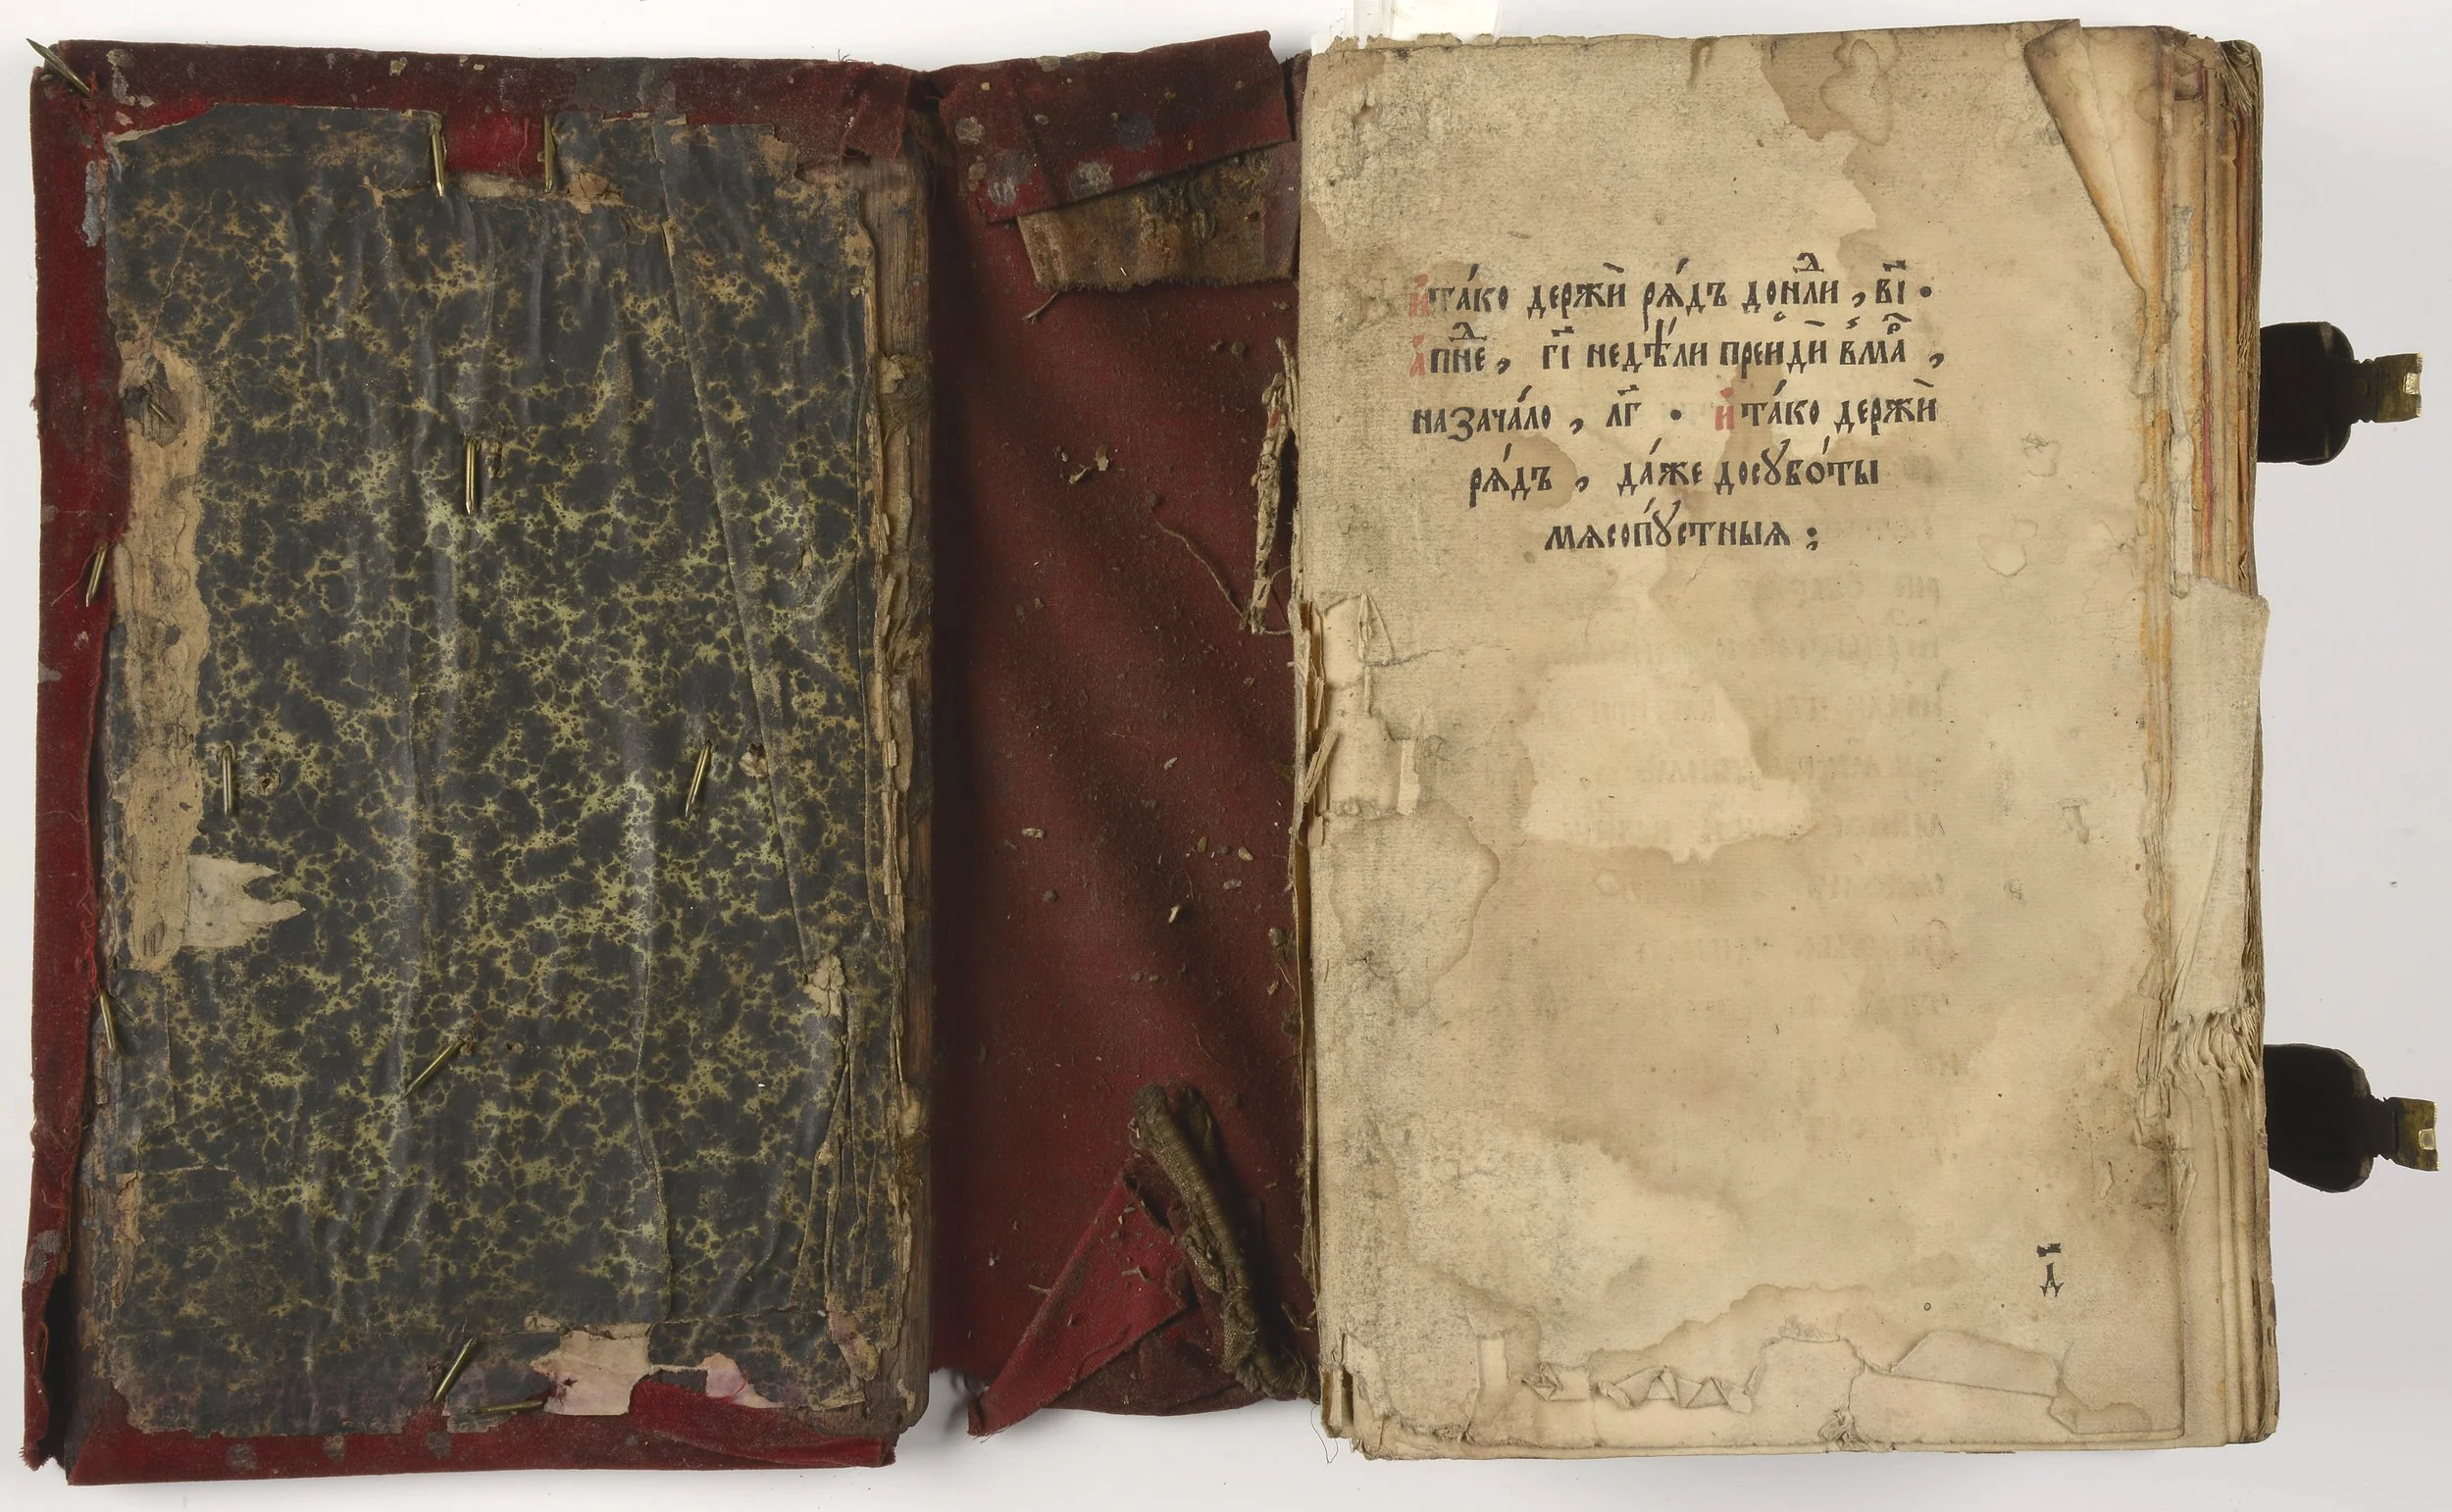 И҆та́ко держѝ рѧ́дъ дон︮лⷣи , в︮і .
А҆пнⷣе , г︮і недѣ́ли преидѝ вма́рⷦ҇ ,
назача́ло , л︮г . И҆та́ко держѝ
рѧ́дъ , да́же досꙋбо́ты
мѧсопꙋ́стныѧ :
д҃